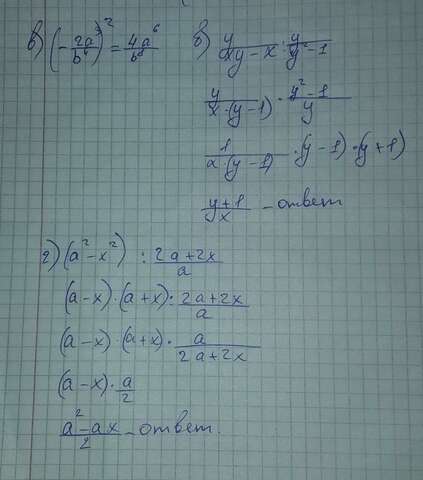 в) (-2a³/b⁴)² = 4a⁶/b⁸
б) y/xy-x : y/y²-1
y/x·(y-1) · y²-1/y
1/x·(y-1) · (y-1)·(y+1)
y+1/x - ответ
г) (a²-x²) : 2a+2x/a
(a-x)·(a+x) : 2a+2x/a
(a-x)·(a+x)· a/2a+2x
(a-x)· a/2
a²-ax/2 - ответ.